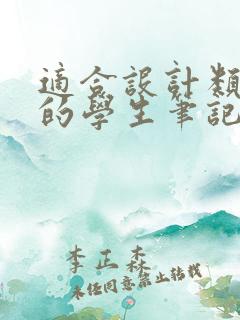 適合設計類
的學生筆記
李正森
未經同意禁止轉載